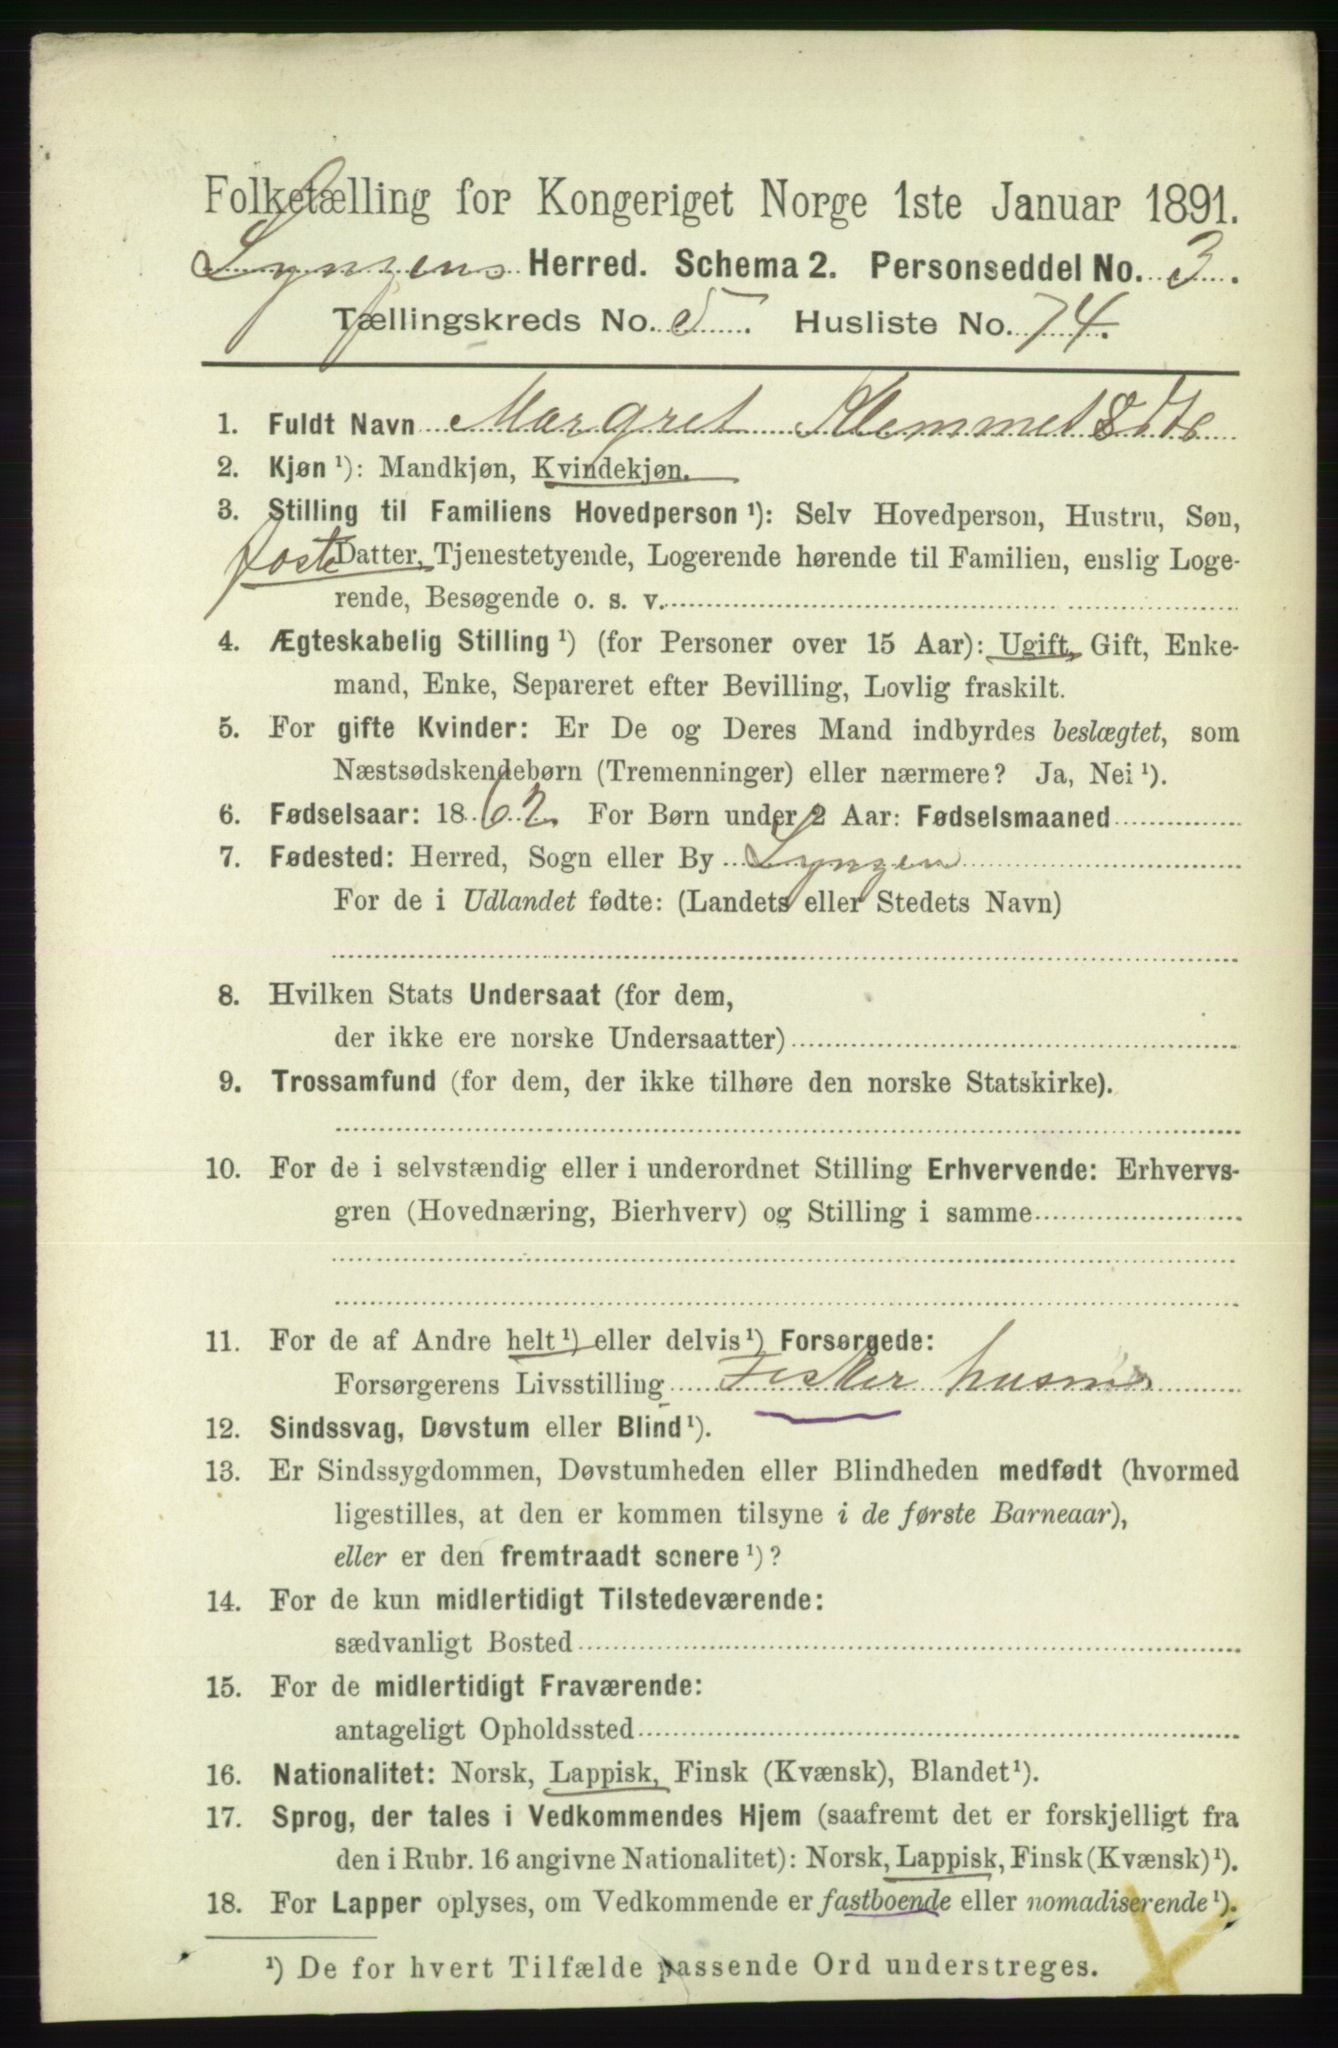 Folketælling for Kongeriget Norge 1ste Januar 1891.
Lyngens Herred. Schema 2. Personseddel No. 3.
Tællingskreds No. 5. Husliste No. 74.
1. Fuldt Navn Margret Klemmets
2. Kjøn ¹): Mandkjøn, Kvindekjøn.
3. Stilling til Familiens Hovedperson ¹): Selv Hovedperson, Hustru, Søn,
foste Datter, Tjenestetyende, Logerende hørende til Familien, enslig Loge-
rende, Besøgende o. s. v.
4. Ægteskabelig Stilling ¹) (for Personer over 15 Aar): Ugift, Gift, Enke-
mand, Enke, Separeret efter Bevilling, Lovlig fraskilt.
5. For gifte Kvinder: Er De og Deres Mand indbyrdes beslægtet, som
Næstsødskendebørn (Tremenninger) eller nærmere? Ja, Nei ¹).
6. Fødselsaar: 1862. For Børn under 2 Aar: Fødselsmaaned
7. Fødested: Herred, Sogn eller By Lyngen
For de i Udlandet fødte: (Landets eller Stedets Navn)
8. Hvilken Stats Undersaat (for dem,
der ikke ere norske Undersaatter)
9. Trossamfund (for dem, der ikke tilhøre den norske Statskirke).
10. For de i selvstændig eller i underordnet Stilling Erhvervende: Erhvervs-
gren (Hovednæring, Bierhverv) og Stilling i samme
11. For de af Andre helt ¹) eller delvis ¹) Forsørgede:
Forsørgerens Livsstilling Fisker husm
12. Sindssvag, Døvstum eller Blind ¹).
13. Er Sindssygdommen, Døvstumheden eller Blindheden medfødt (hvormed
ligestilles, at den er kommen tilsyne i de første Barneaar),
eller er den fremtraadt senere ¹)?
14. For de kun midlertidigt Tilstedeværende:
sædvanligt Bosted
15. For de midlertidigt Fraværende:
antageligt Opholdssted
16. Nationalitet: Norsk, Lappisk, Finsk (Kvænsk), Blandet ¹).
17. Sprog, der tales i Vedkommendes Hjem (saafremt det er forskjelligt fra
den i Rubr. 16 angivne Nationalitet): Norsk, Lappisk, Finsk (Kvænsk) ¹).
18. For Lapper oplyses, om Vedkommende er fastboende eller nomadiserende ¹).
¹) De for hvert Tilfælde passende Ord understreges.